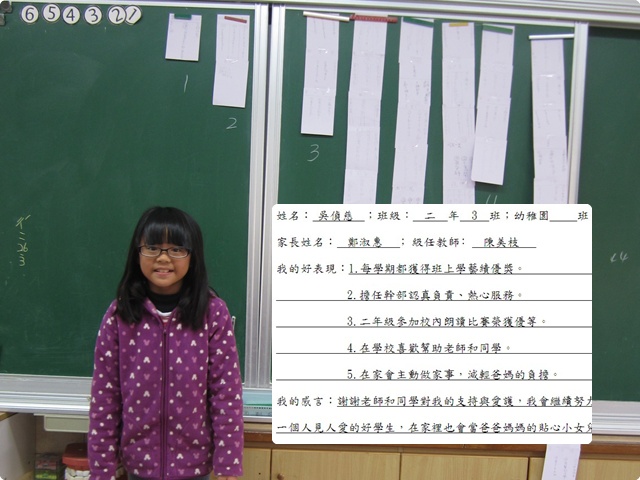 6 5 4 3 2 1
1
2
3
姓名：吳偵慈；班級：二年3班；幼稚園　　班
家長姓名：鄭淑惠；級任教師：陳美枝
我的好表現：1.每學期都獲得班上學藝績優獎。
2.擔任幹部認真負責、熱心服務。
3.二年級參加校內朗讀比賽榮獲優等。
4.在學校喜歡幫助老師和同學。
5.在家會主動做家事，減輕爸媽的負擔。
我的感言：謝謝老師和同學對我的支持與愛護，我會繼續努力
一個人見人愛的好學生，在家裡也會當爸爸媽媽的貼心小女兒